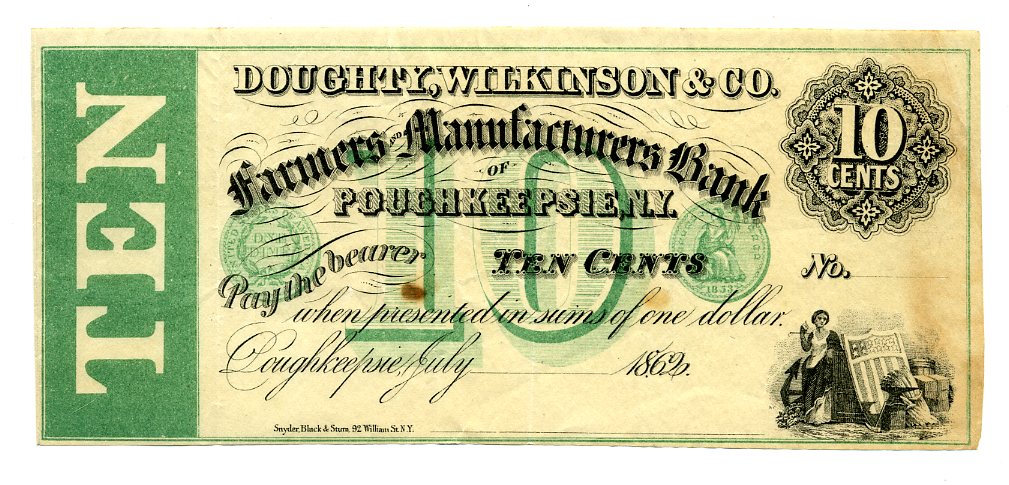 TEN
DOUGHTY, WILKINSON & CO.
Farmers AND Manufacturers Bank
OF
POUGHKEEPSIE, N.Y.
10
CENTS
10
Pay the bearer TEN CENTS No.
1853
when presented in sums of one dollar.
Poughkeepsie, July 1862.
Snyder, Black & Sturn, 92 William St. N.Y.